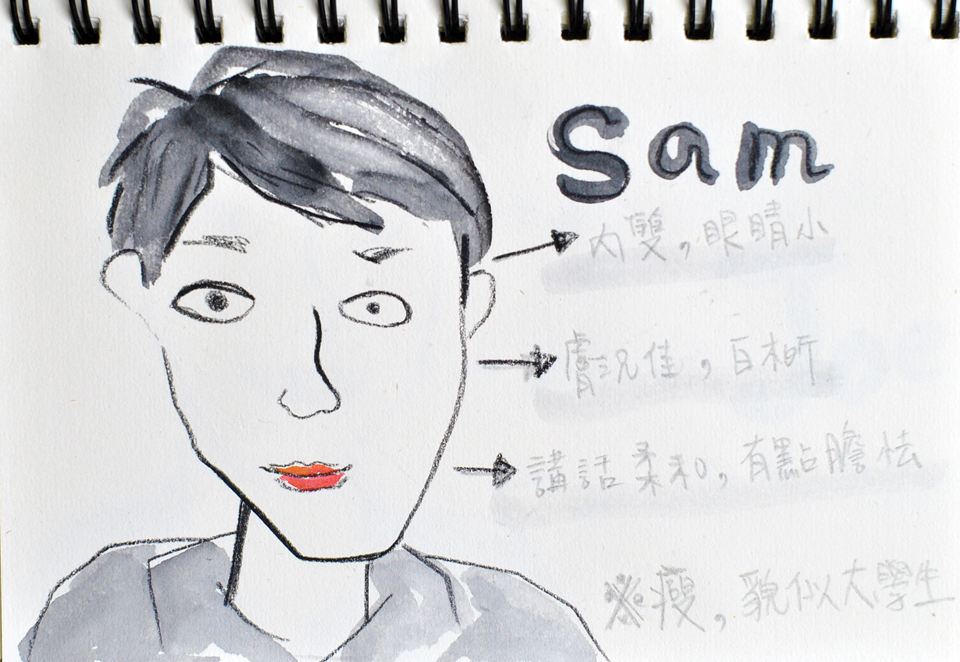 Sam
內雙，眼睛小
膚況佳，白晰
講話柔和，有點膽怯
※瘦，貌似大學生